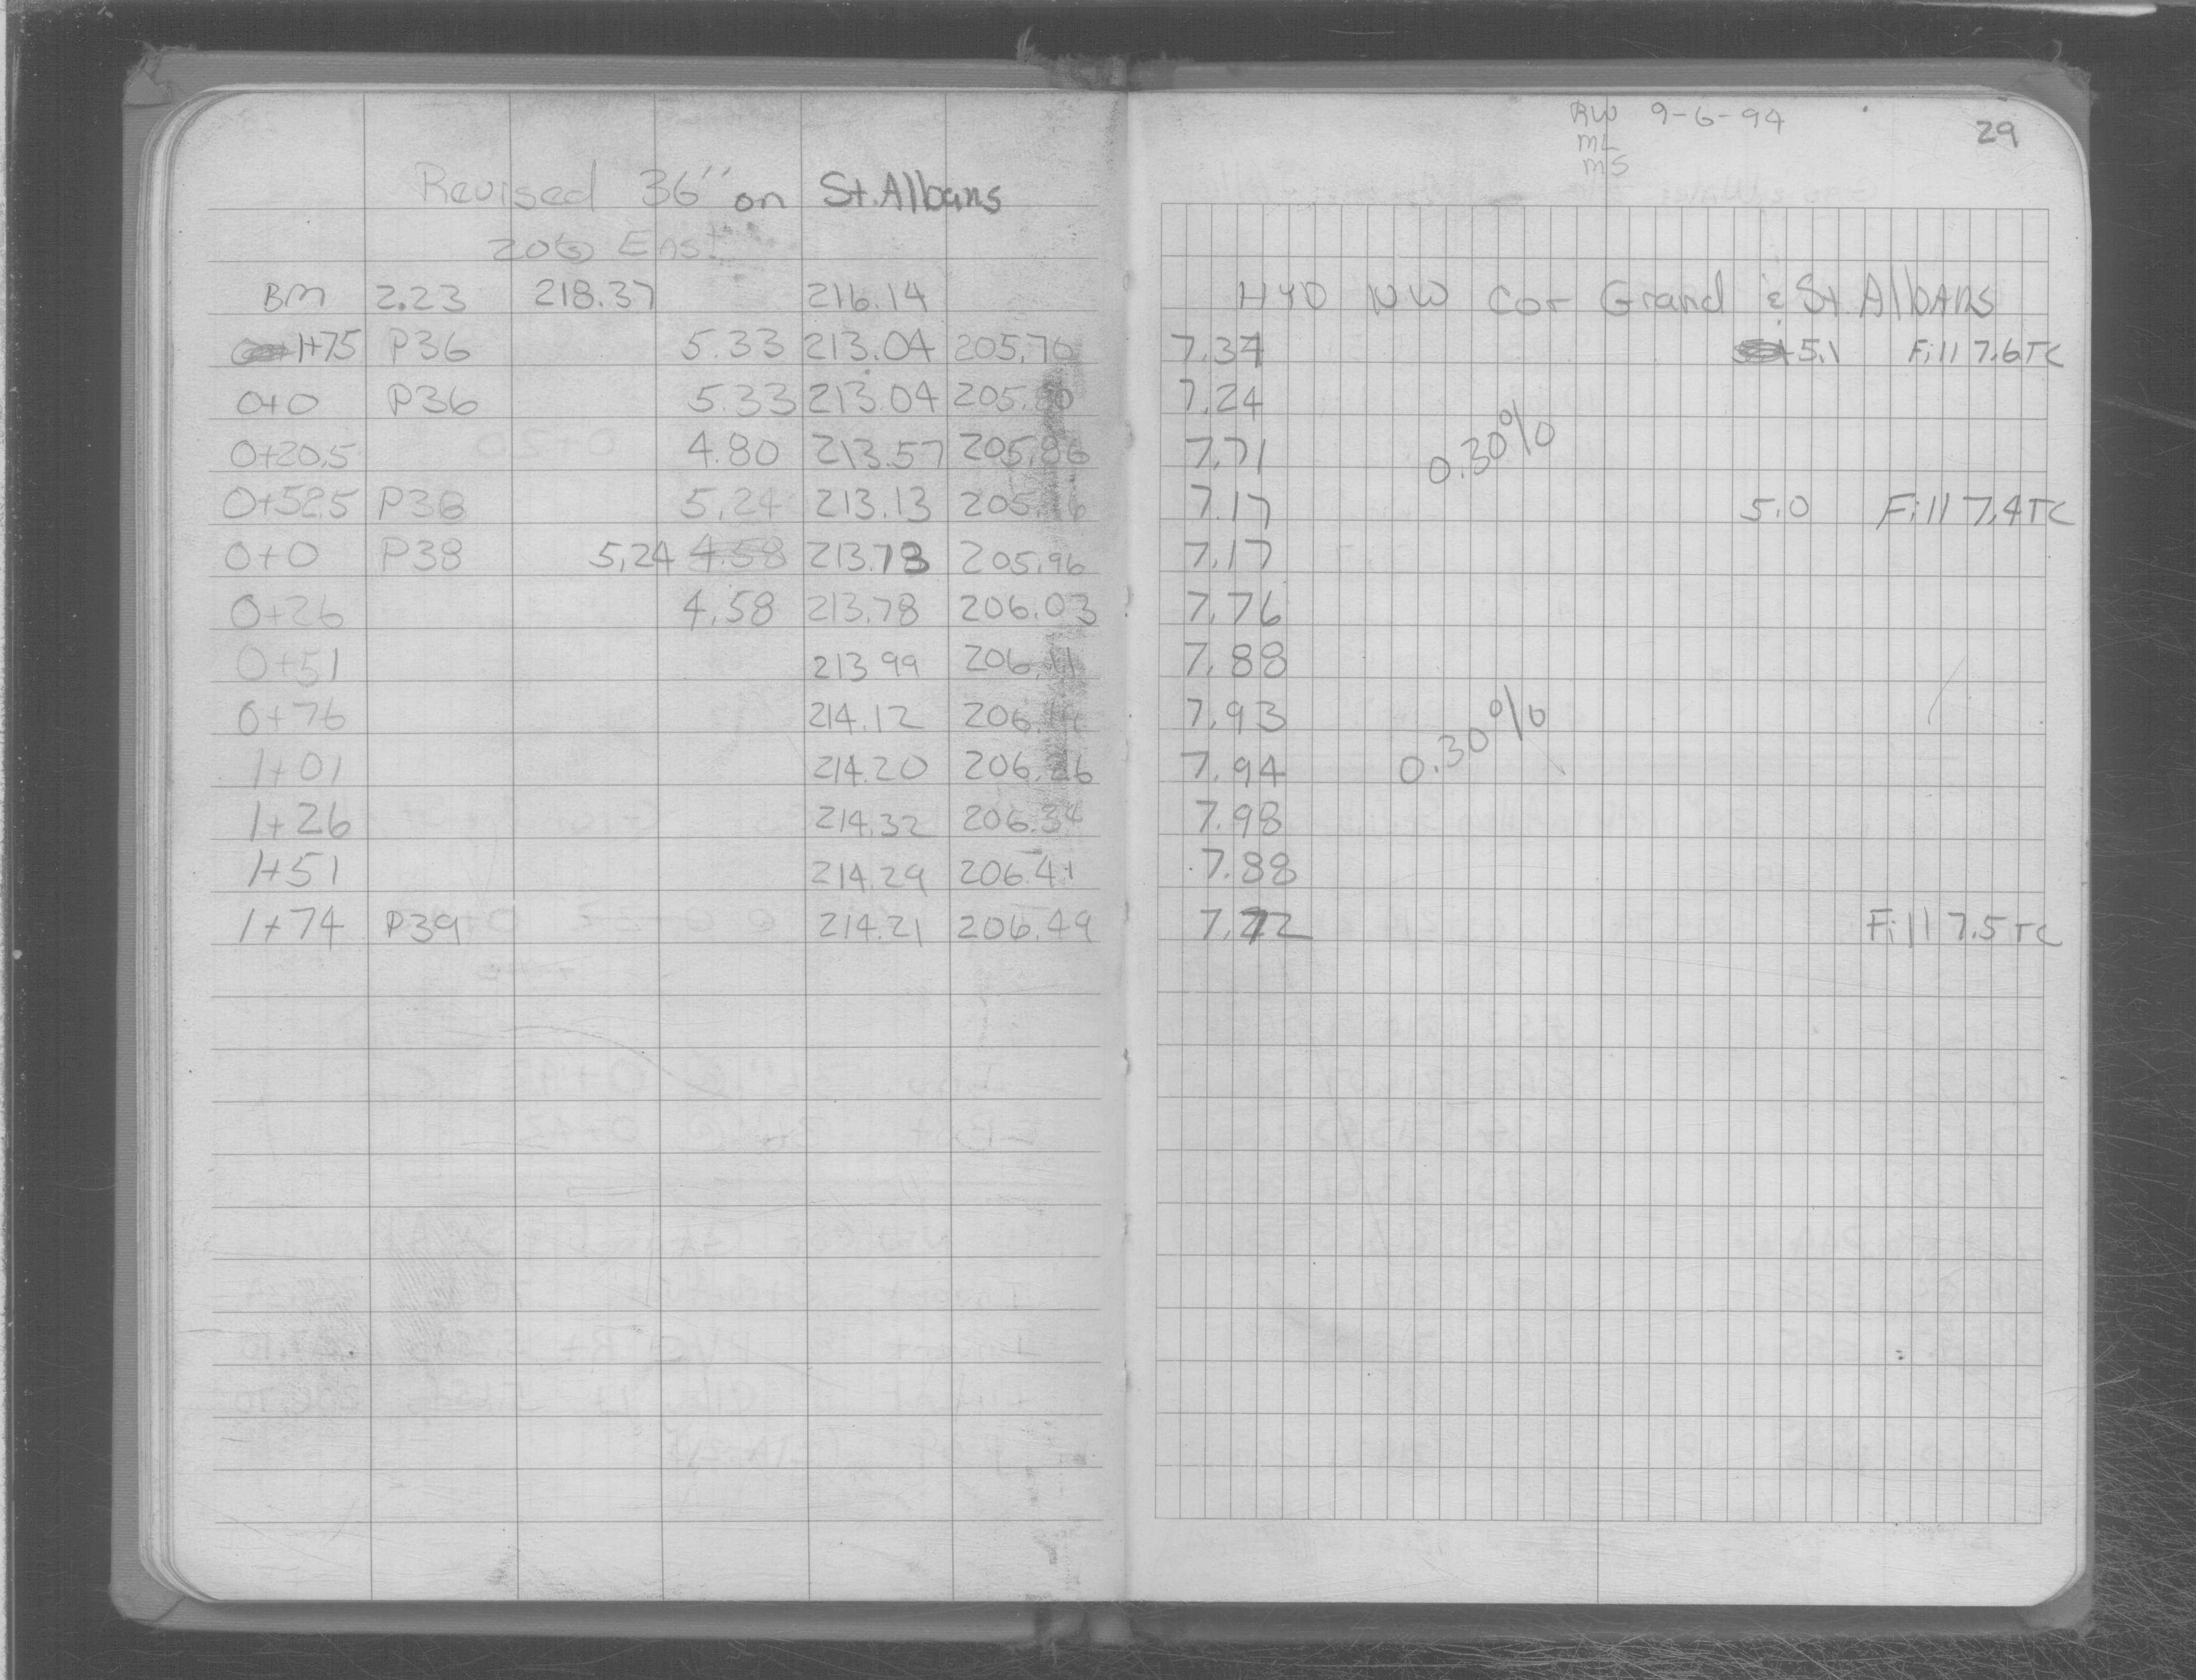 Revised 36" on St. Albans
BM 2.23 218.37 216.14
1+75 P36 5.33 213.04 205.70
0+0 P36 5.33 213.04 205.80
0+20.5 4.80 213.57 205.86
0+52.5 P38 5.24 213.13 205.96
0+0 P38 5.24 4.58 213.13 205.96
0+26 4.58 213.78 206.03
0+51 213.99 206.11
0+76 214.12
1+01 214.20 206.26
1+26 214.32 206.34
1+51 214.29 206.41
1+74 P39 214.21 206.49
RW 9-6-94
ML
MS
29
HYD NW Cor Grand & St. Albans
7.34 5.1 Fill 7.6 TC
7.24
7.71
0.30%
7.17 5.0 Fill 7.4 TC
7.17
7.76
7.88
7.93
0.30%
7.94
7.98
7.88
7.72 Fill 7.5 TC